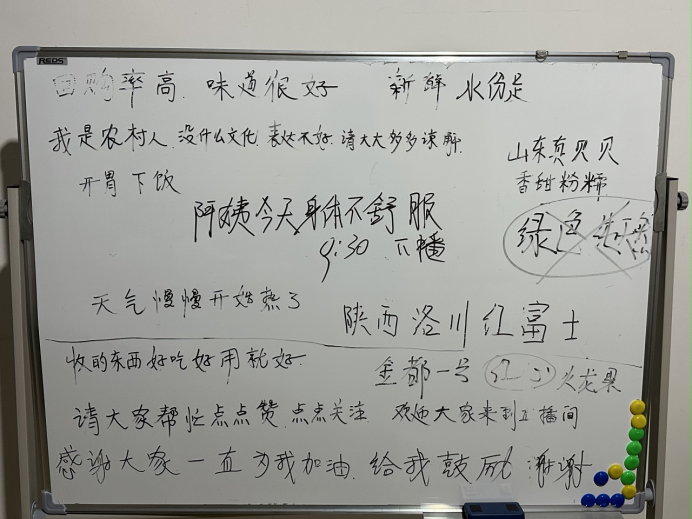 REDS
回购率高 味道很好 新鲜 水份足
我是农村人.没什么文化.表达不好.请大大多多谅解.
山东贝贝
香甜粉糯
开胃下饭
阿姨今天身体不舒服
绿色
9:30 下播
天气慢慢开始热了
陕西洛川红富士
收的东西好吃好用就好.
金都一号 红心火龙果
请大家帮忙点点赞.点点关注 欢迎大家来到直播间
感谢大家一直为我加油.给我鼓励.谢谢